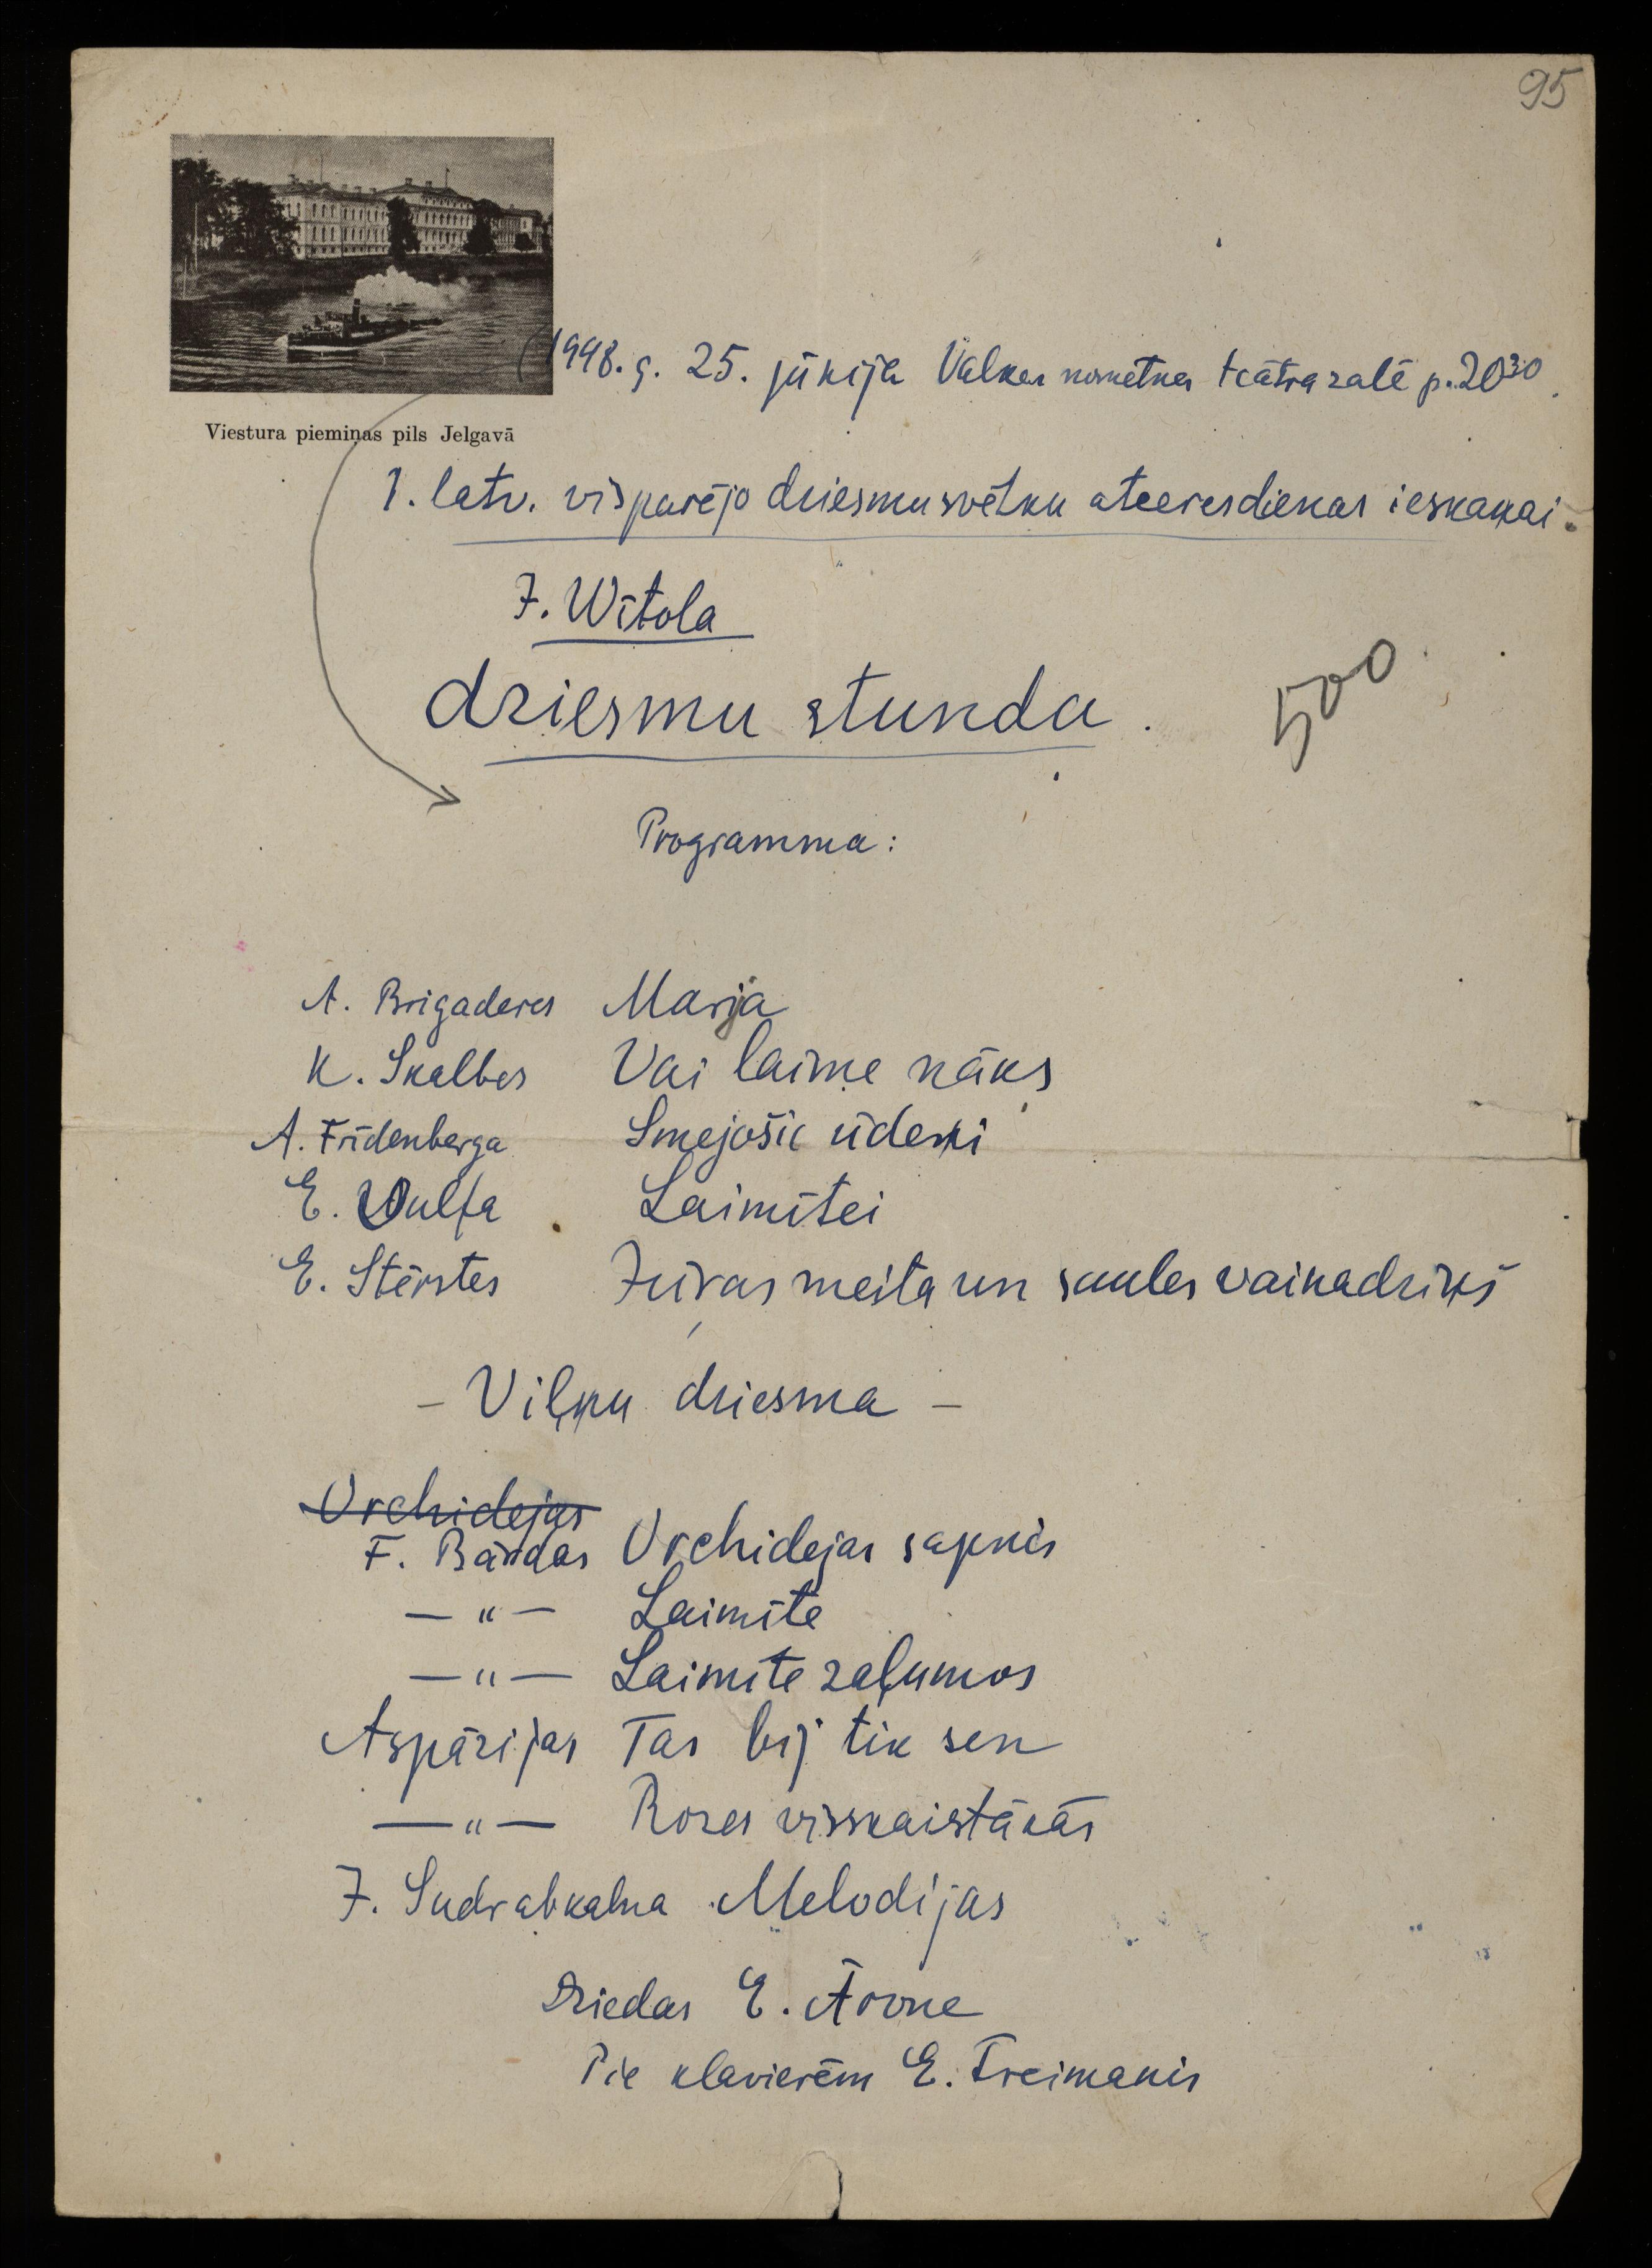 95
Viestura piemiņas pils Jelgavā
1948. g. 25. jūnijā Valkas nometnes teātra zālē p. 20³⁰.
1. latv. vispārējo dziesmu svētku atceresdienas ieskaņai.
J. Wītola
dziesmu stunda.
500
Programma:
A. Brigaderes Marija
K. Skalbes Vai laime nāks
A. Frīdenberga Smejošie ūdeņi
E. Vulfa Laimītei
E. Stērstes Jūras meita un saules vainadziņš
– Viļņu dziesma –
Orchidejas
F. Bārdas Orchidejas sapnis
— " — Laimīte
— " — Laimīte zaļumos
Aspāzijas Tas bij tik sen
— " — Rozes visskaistākās
J. Sudrabkalna Melodijas
Dziedās E. Ārone
Pie klavierēm E. Freimanis